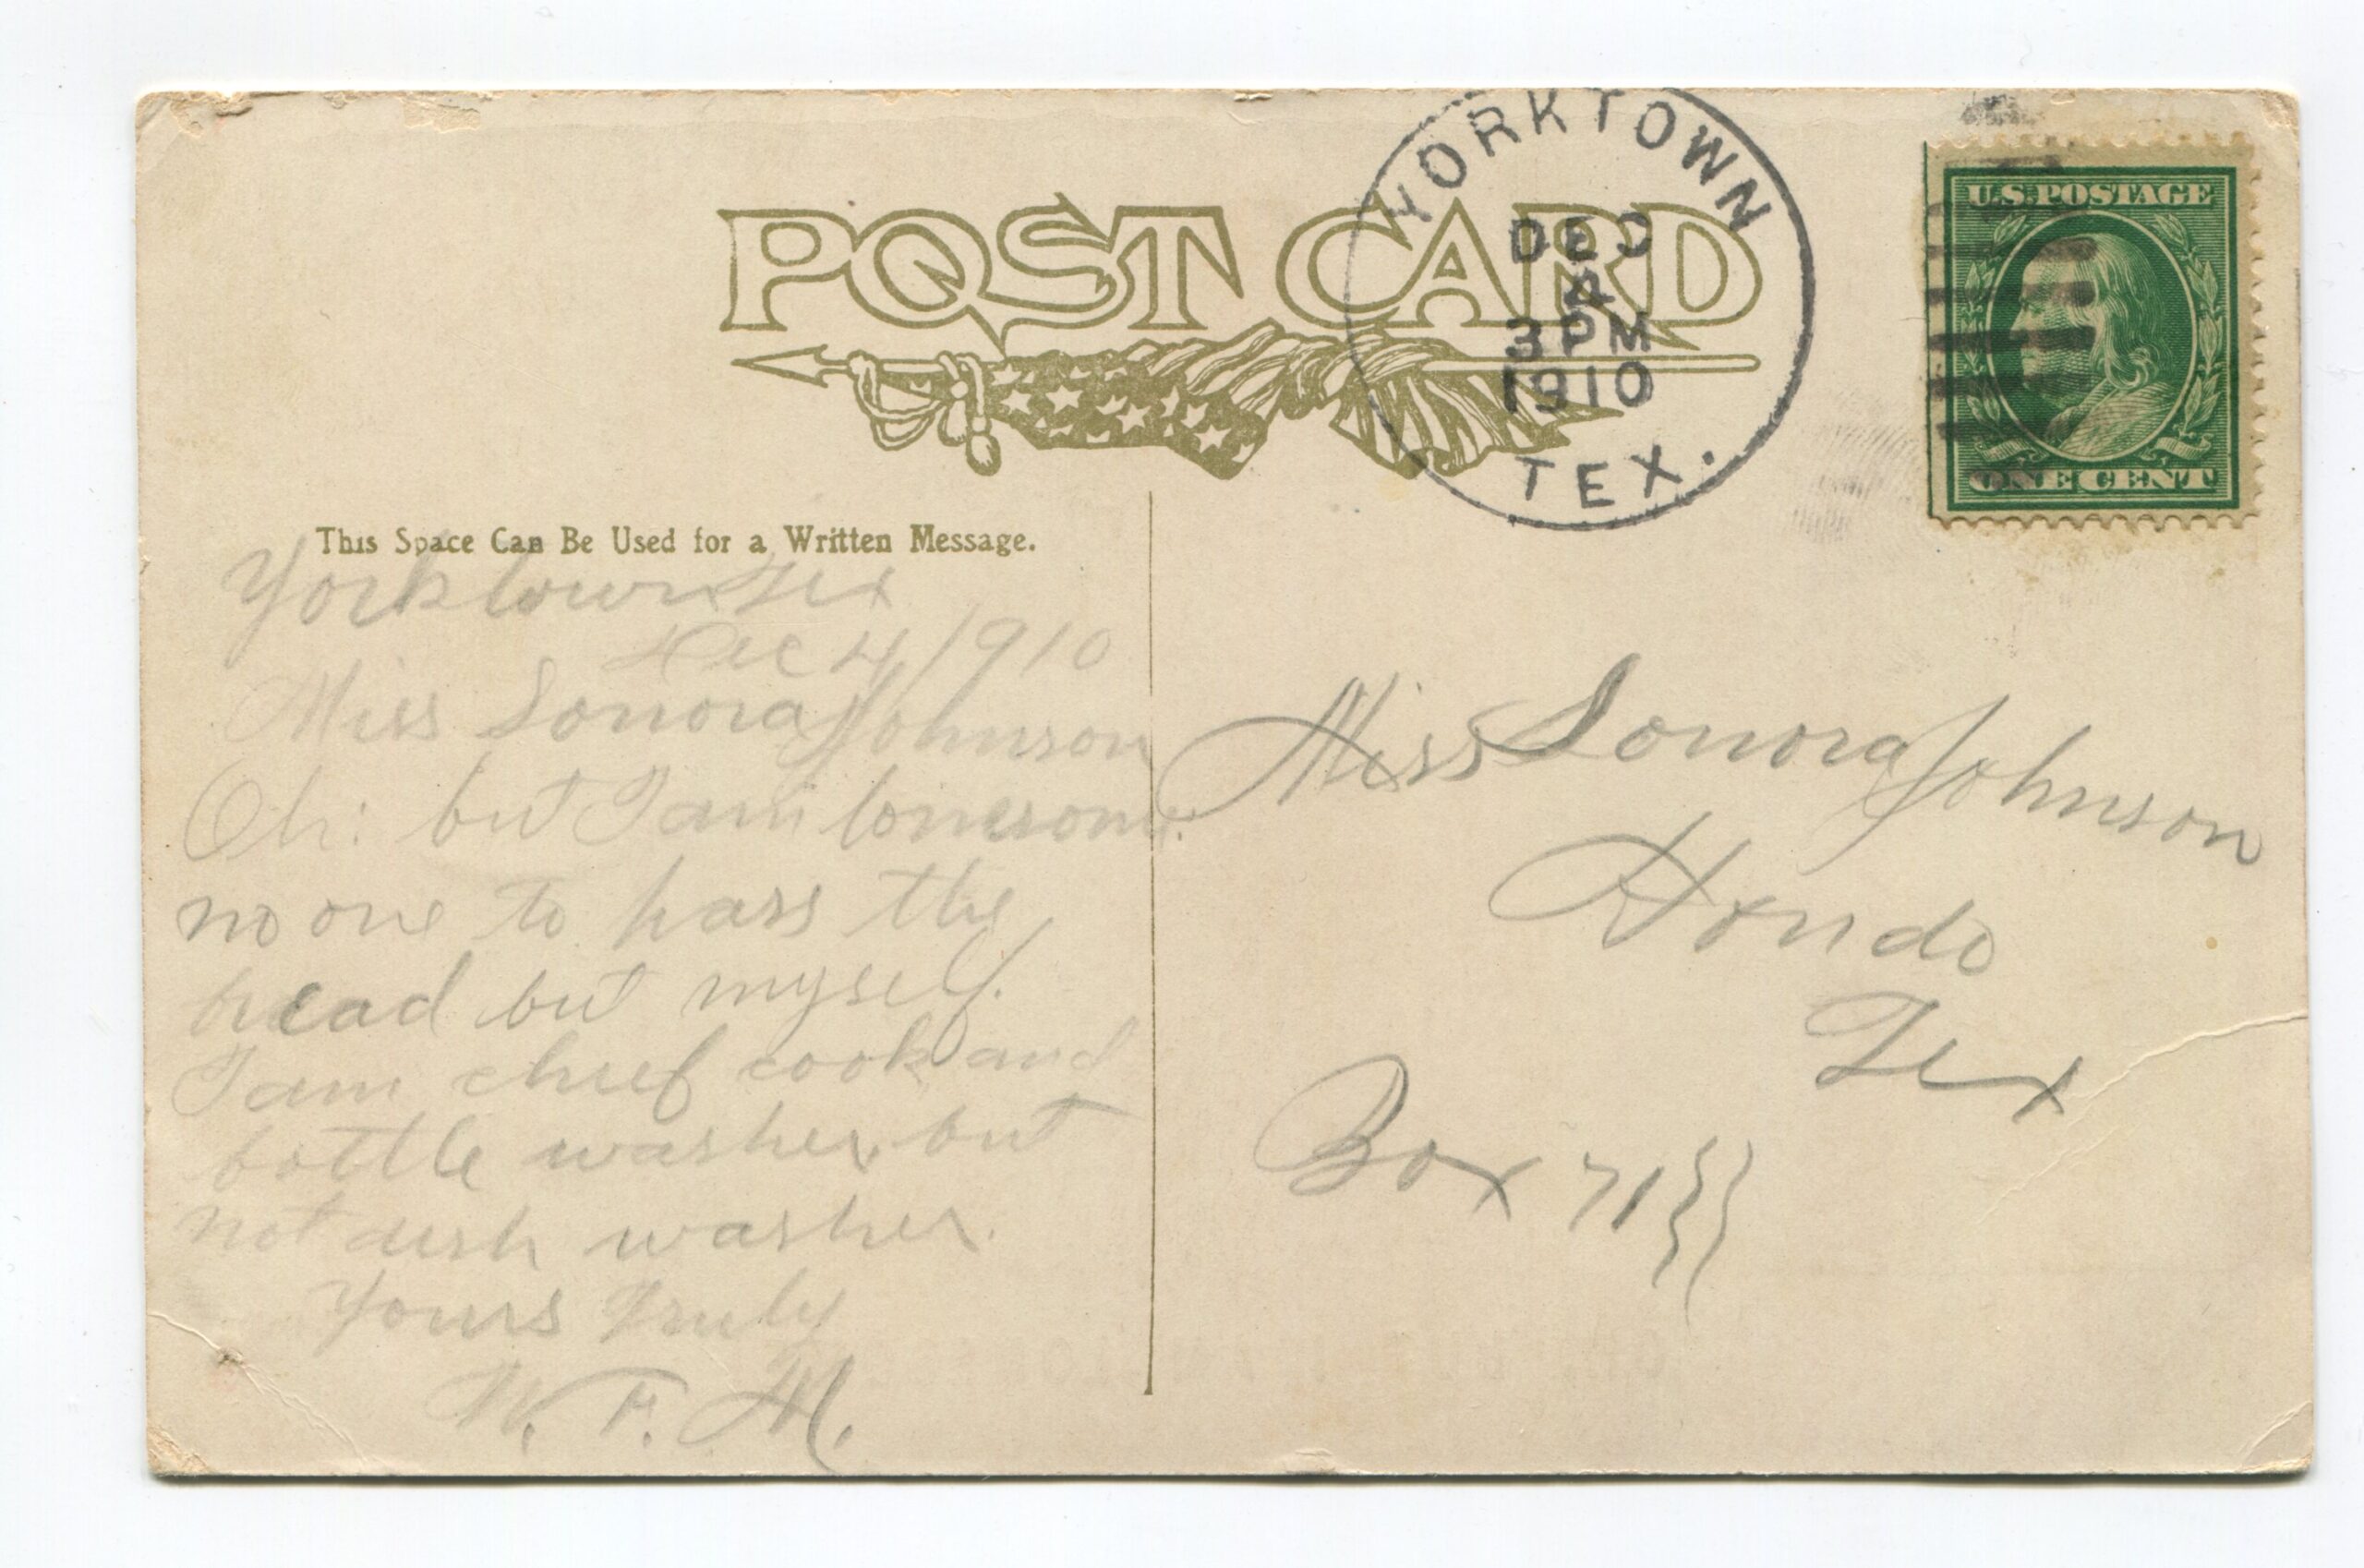 POST CARD
YORKTOWN
DEC
4
3 PM
1910
TEX.
U.S. POSTAGE
ONE CENT
This Space Can Be Used for a Written Message.
Yorktown Tex
Dec 4, 1910
Miss Sonora Johnson
Oh: but I am lonesome.
no one to pass the
bread but myself.
I am chief cook and
bottle washer, but
not dish washer.
Yours Truly
W. F. M.
Miss Sonora Johnson
Hondo
Tex
Box 71